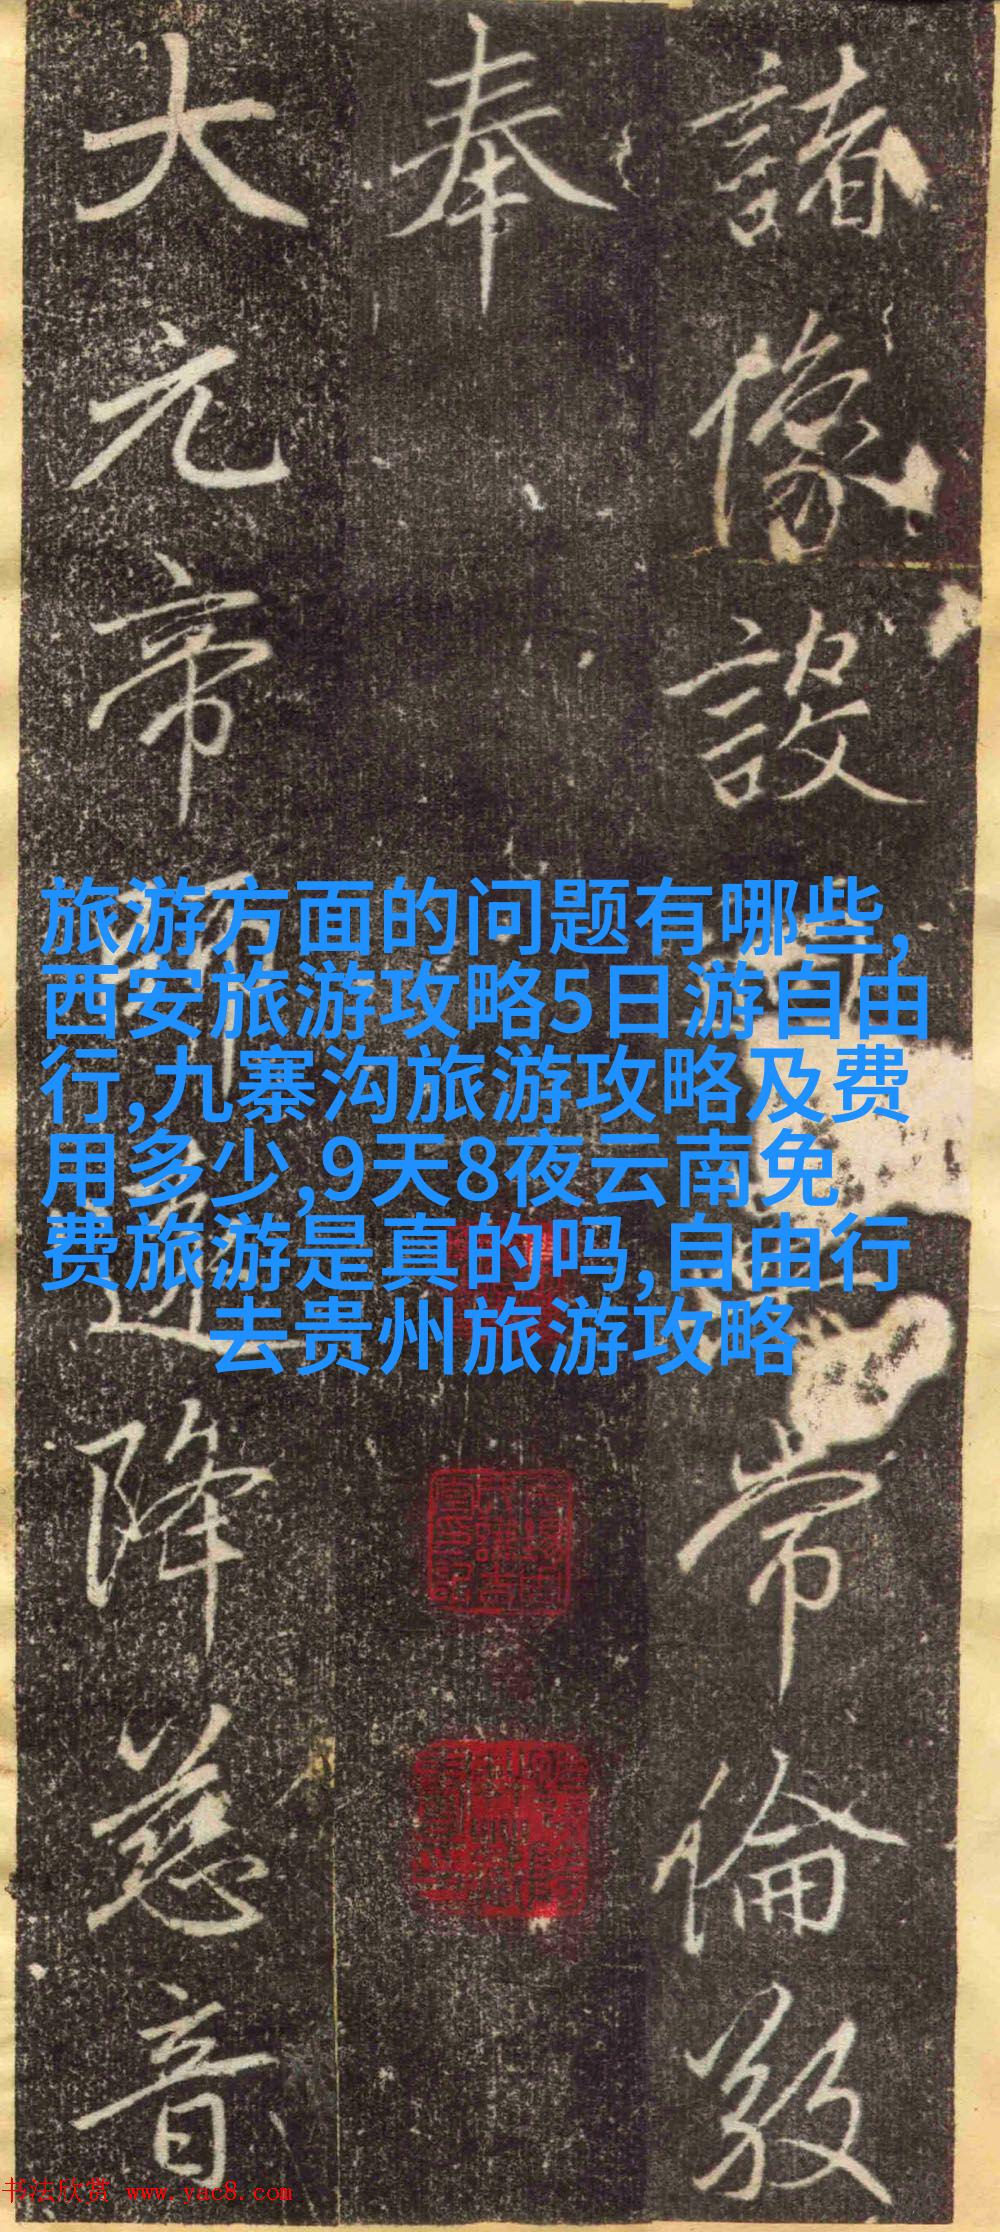 諸像設
常倫敬
奉
大元帝師
遵降慈音
旅游方面的问题有哪些,
西安旅游攻略5日游自由
行,九寨沟旅游攻略及费
用多少,9天8夜云南免
费旅游是真的吗,自由行
去贵州旅游攻略
书法欣赏 www.yac8.com